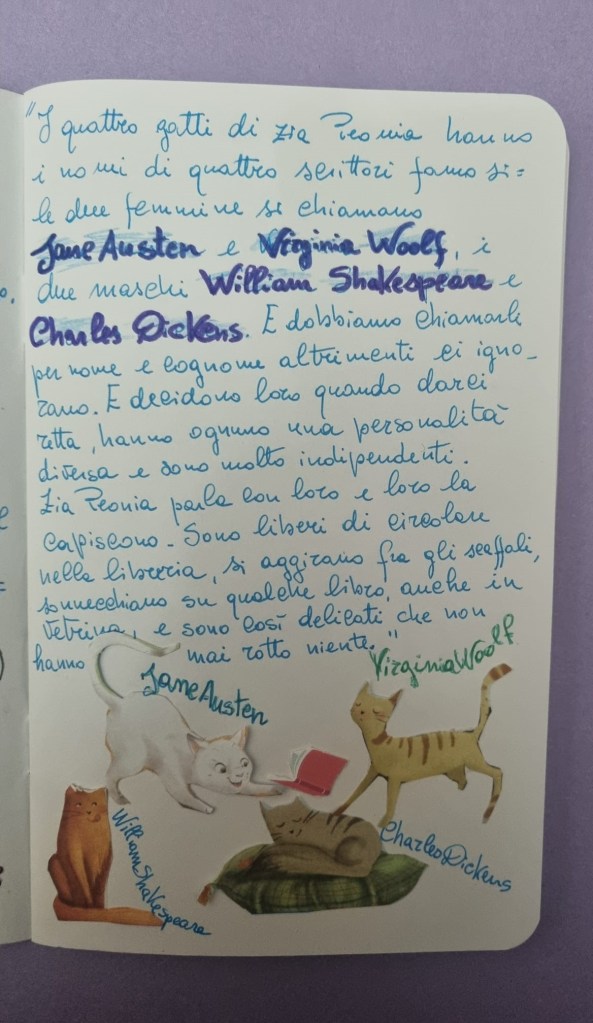 "I quattro gatti di zia Peonia hanno
i nomi di quattro scrittori famosi=
le due femmine si chiamano
Jane Austen e Virginia Woolf, i
due maschi William Shakespeare e
Charles Dickens. E dobbiamo chiamarli
per nome e cognome altrimenti ci igno-
rano. E decidono loro quando darci
retta, hanno ognuno una personalità
diversa e sono molto indipendenti.
Zia Peonia parla con loro e loro la
capiscono. Sono liberi di circolare
nella libreria, si aggirano fra gli scaffali,
sonnecchiano su qualche libro, anche in
vetrina, e sono così delicati che non
hanno mai rotto niente."
Jane Austen
Virginia Woolf
William Shakespeare
Charles Dickens